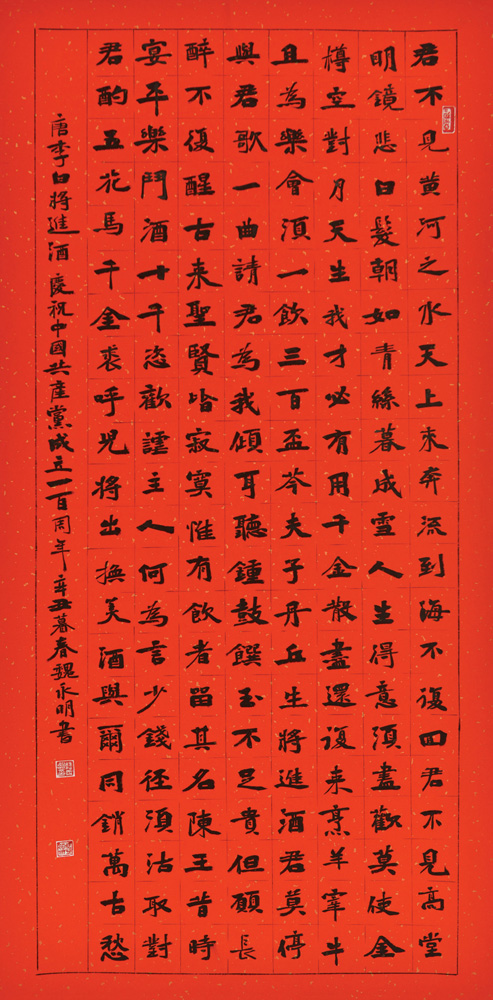 君不見黄河之水天上来奔流到海不復回君不見高堂
明鏡悲白髮朝如青絲暮成雪人生得意須盡歡莫使金
樽空對月天生我才必有用千金散盡還復来烹羊宰牛
且為樂會須一飲三百盃岑夫子丹丘生將進酒君莫停
與君歌一曲請君為我傾耳聽鍾鼓饌玉不足貴但願長
醉不復醒古来聖賢皆寂寞惟有飲者留其名陳王昔時
宴平樂鬥酒十千恣歡謔主人何為言少錢徑須沽取對
君酌五花馬千金裘呼児將出換美酒與爾同銷萬古愁
唐李白將進酒慶祝中國共産黨成立一百周年辛丑暮春魏永明書